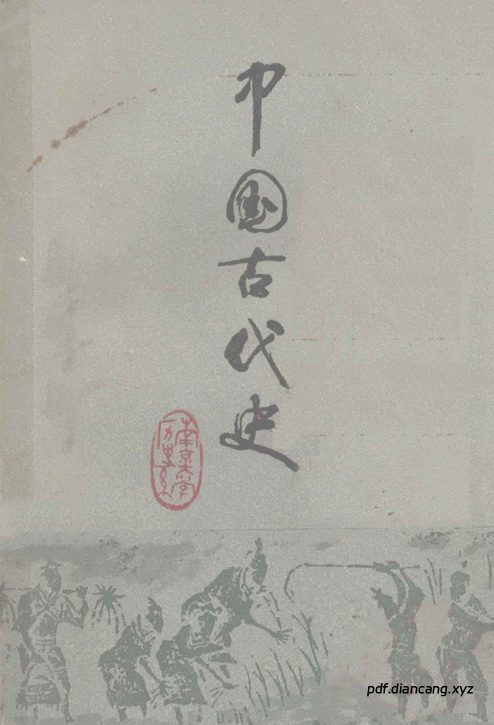 中国古代史
南京大学
历史系
pdf.diancang.xyz